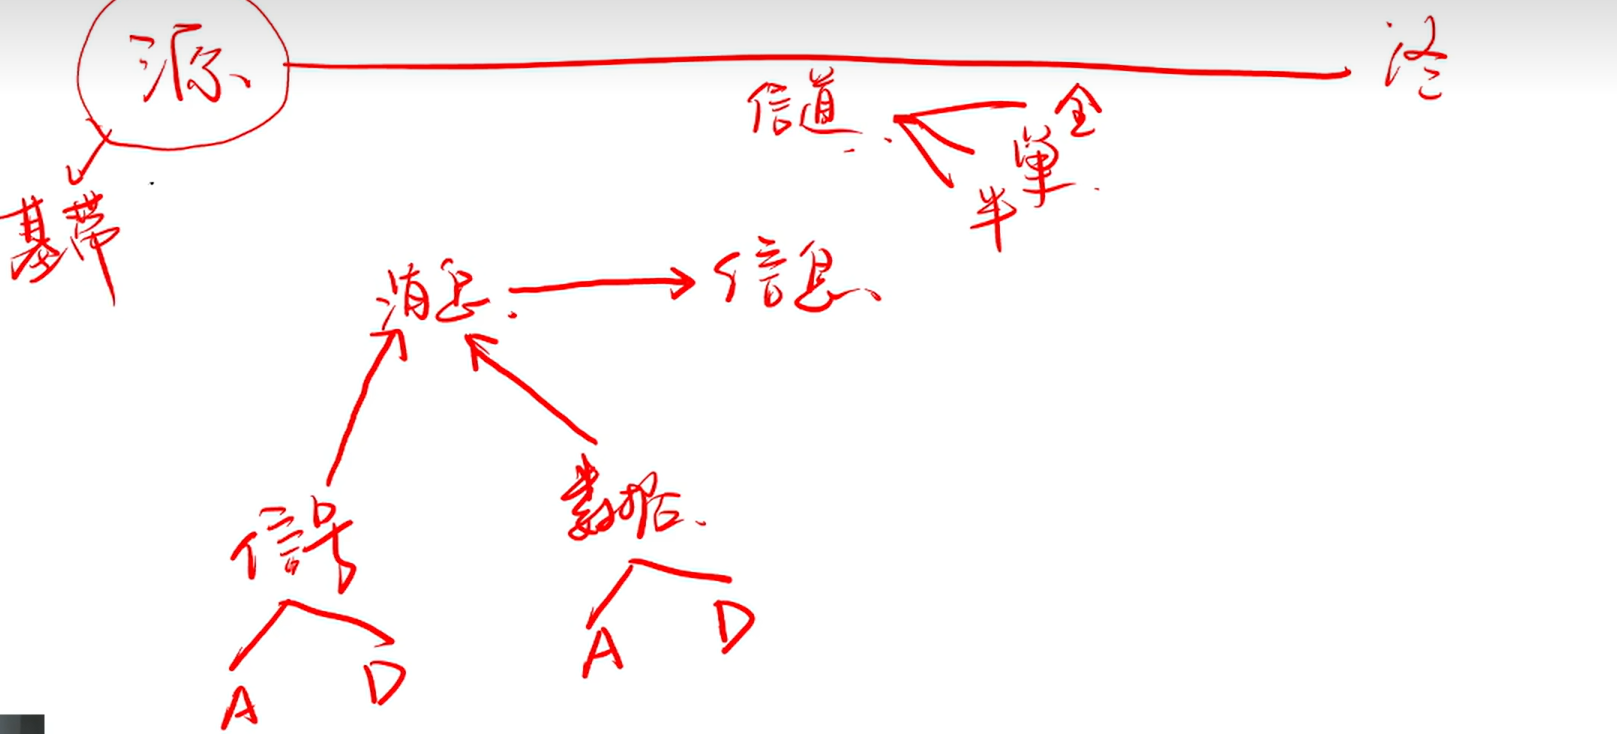 源
信道
全
單
半
基带
消息
信息
信号
数据
A
D
A
D